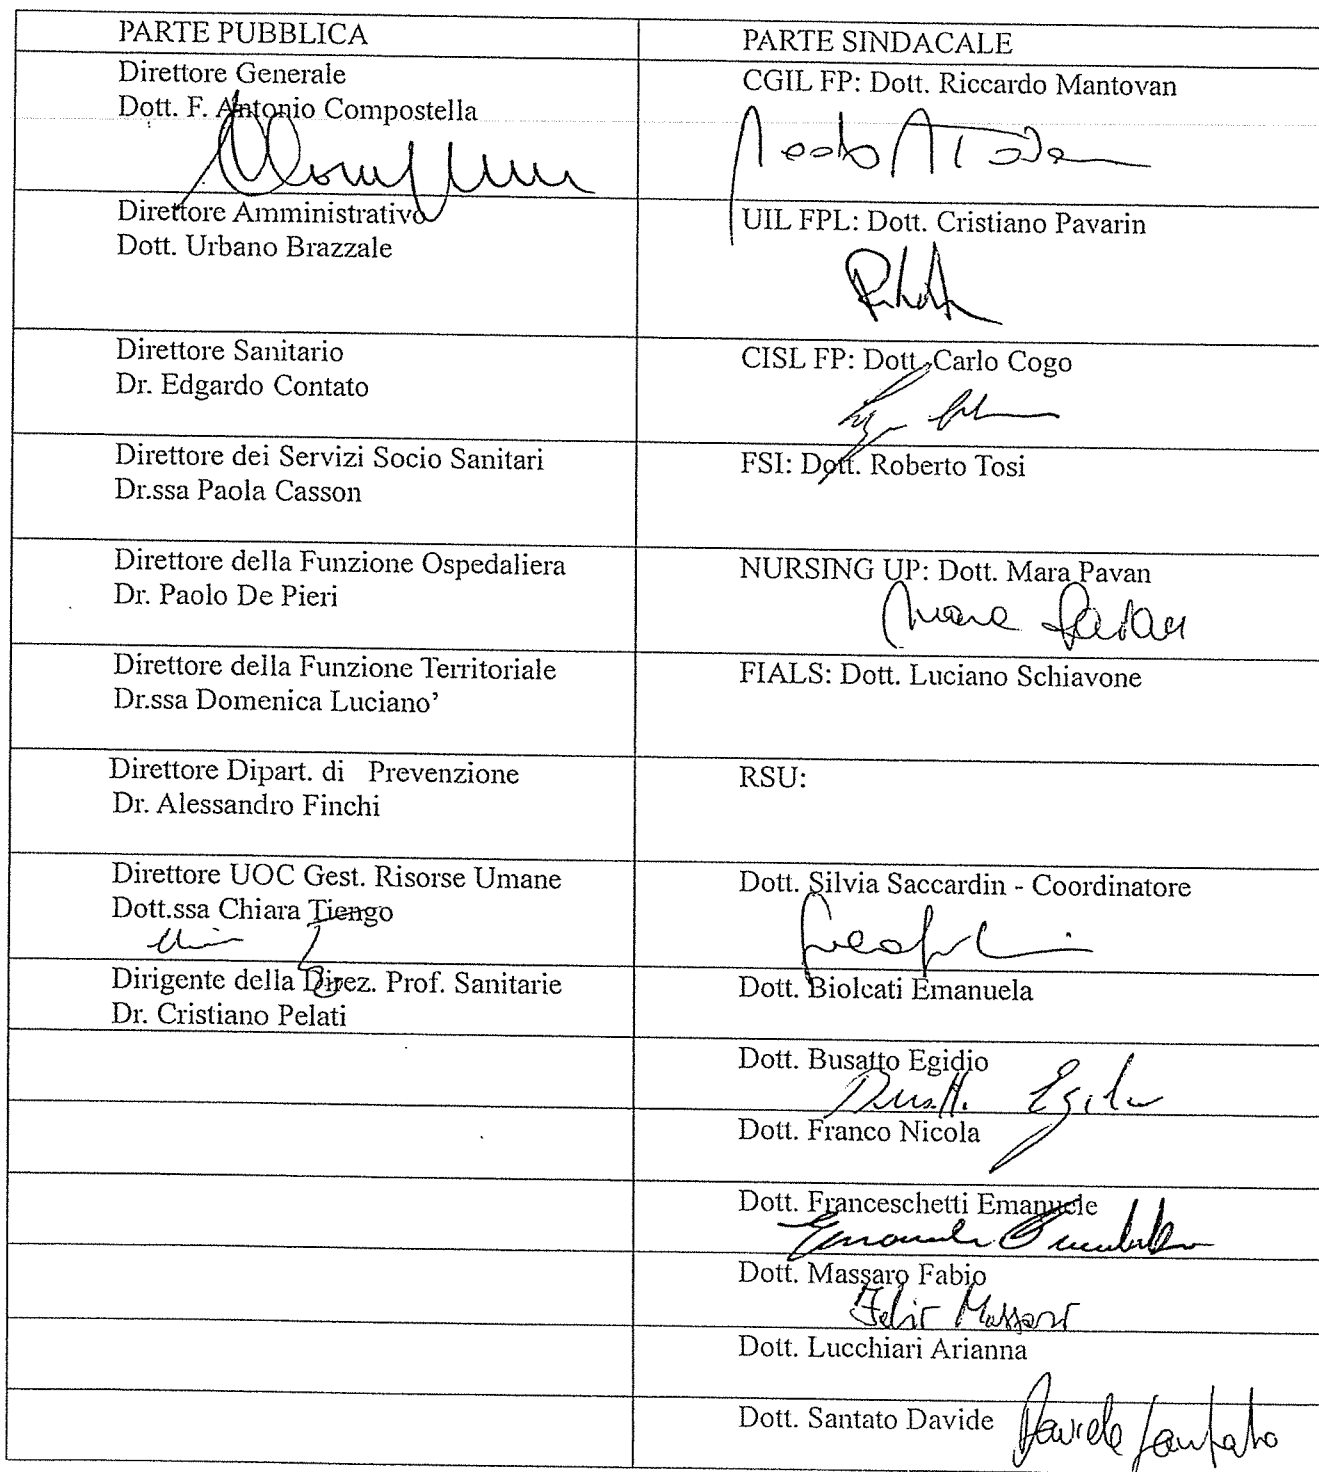 PARTE PUBBLICA
PARTE SINDACALE
Direttore Generale
Dott. F. Antonio Compostella
CGIL FP: Dott. Riccardo Mantovan
Direttore Amministrativo
Dott. Urbano Brazzale
UIL FPL: Dott. Cristiano Pavarin
Direttore Sanitario
Dr. Edgardo Contato
CISL FP: Dott. Carlo Cogo
Direttore dei Servizi Socio Sanitari
Dr.ssa Paola Casson
FSI: Dott. Roberto Tosi
Direttore della Funzione Ospedaliera
Dr. Paolo De Pieri
NURSING UP: Dott. Mara Pavan
Mara Pavan
Direttore della Funzione Territoriale
Dr.ssa Domenica Luciano’
FIALS: Dott. Luciano Schiavone
Direttore Dipart. di Prevenzione
Dr. Alessandro Finchi
RSU:
Direttore UOC Gest. Risorse Umane
Dott.ssa Chiara Tiengo
Dott. Silvia Saccardin - Coordinatore
Dirigente della Direz. Prof. Sanitarie
Dr. Cristiano Pelati
Dott. Biolcati Emanuela
Dott. Busatto Egidio
Dott. Franco Nicola
Dott. Franceschetti Emanuele
Dott. Massaro Fabio
Dott. Lucchiari Arianna
Dott. Santato Davide
Davide Santato